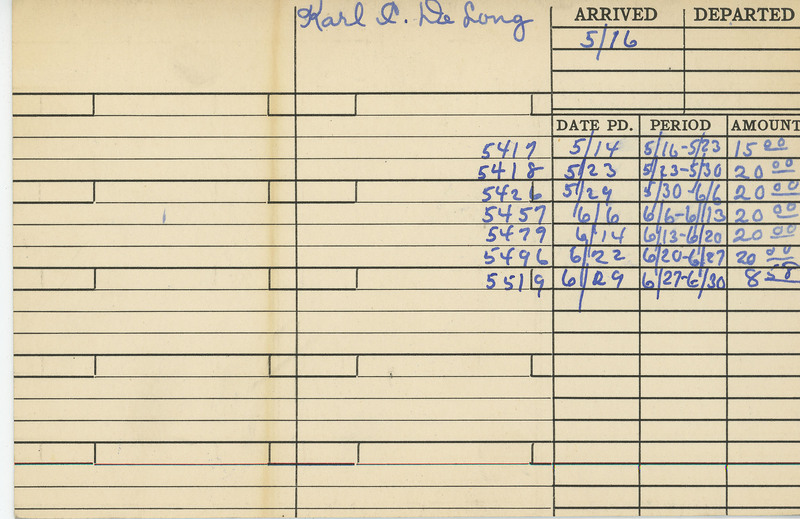 Karl C. De Long ARRIVED DEPARTED
5/16
DATE PD. PERIOD AMOUNT
5417 5/14 5/16-5/23 15 00
5418 5/23 5/23-5/30 20 00
5426 5/29 5/30-6/6 20 00
5457 6/6 6/6-6/13 20 00
5479 6/14 6/13-6/20 20 00
5496 6/22 6/20-6/27 20 00
5519 6/29 6/27-6/30 8 58